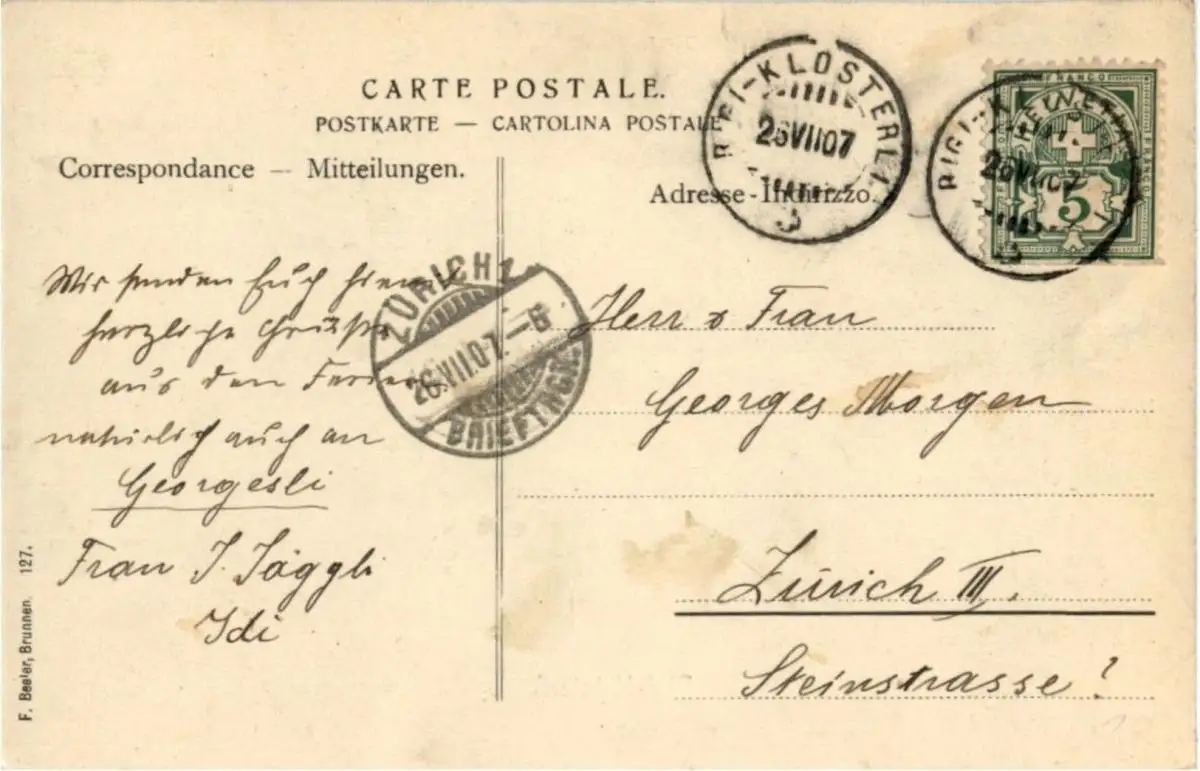 CARTE POSTALE.
POSTKARTE — CARTOLINA POSTALE
Correspondance — Mitteilungen.
Adresse - Indirizzo.
RIGI-KLÖSTERLI
26 VII 07
FRANCO
HELVETIA
5
RIGI-K
26 VII 07
ZÜRICH 1
26.VII.07.—8
BRIEFTRGR.
Wir senden Euch hiermit
herzliche Grüsse
aus den Ferien
natürlich auch an
Georgesli
Frau J. Jäggli
Idi
Herr & Frau
Georges Morgen
Zürich III.
Steinstrasse?
F. Beeler, Brunnen. 127.